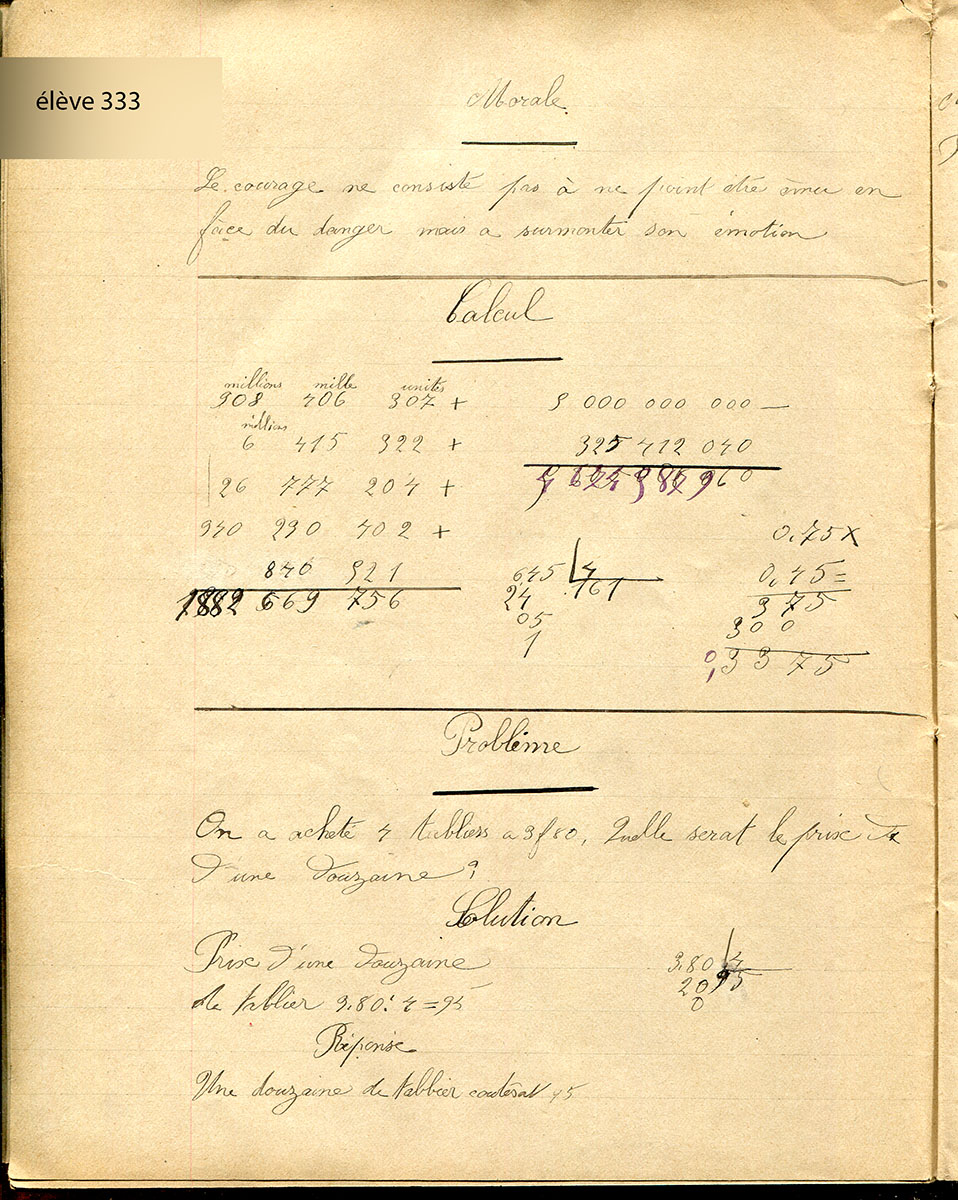 élève 333
Morale
Le courage ne consiste pas à ne point être ému en
face du danger mais a surmonter son émotion
Calcul
millions mille unités
908 406 307 +
millions
6 415 322 +
26 777 204 +
940 230 402 +
840 521
1882 669 756
5 000 000 000 —
325 412 040
645 4
24 161
05
1
0,75 x
0,45 =
375
300
0,3375
Problème
On a acheté 4 tabliers a 3f80, Quelle serat le prix
d'une douzaine?
Solution
Prix d'une douzaine
de tablier 3.80: 4 = 95
3.80 4
20 95
0
Réponse
Une douzaine de tablier couterat 95